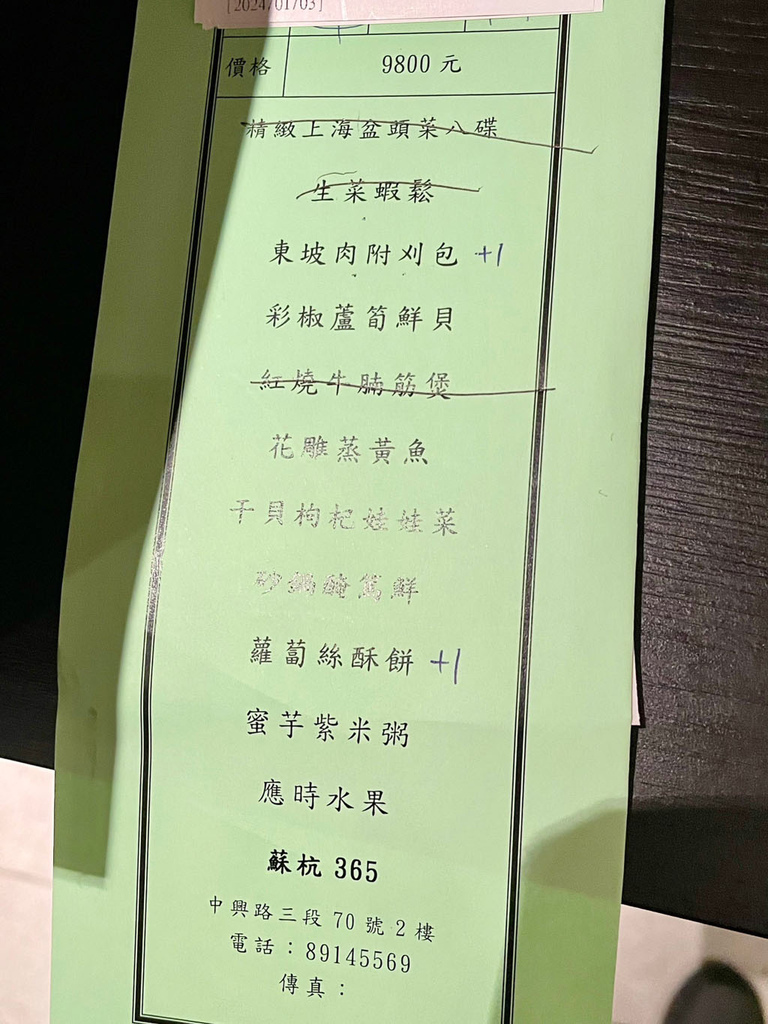 [2024/01/03]
價格 9800 元
精緻上海盆頭菜八碟
生菜蝦鬆
東坡肉附刈包 +1
彩椒蘆筍鮮貝
紅燒牛腩筋煲
花雕蒸黃魚
干貝枸杞娃娃菜
砂鍋醃篤鮮
蘿蔔絲酥餅 +1
蜜芋紫米粥
應時水果
蘇杭 365
中興路三段 70 號 2 樓
電話：89145569
傳真：